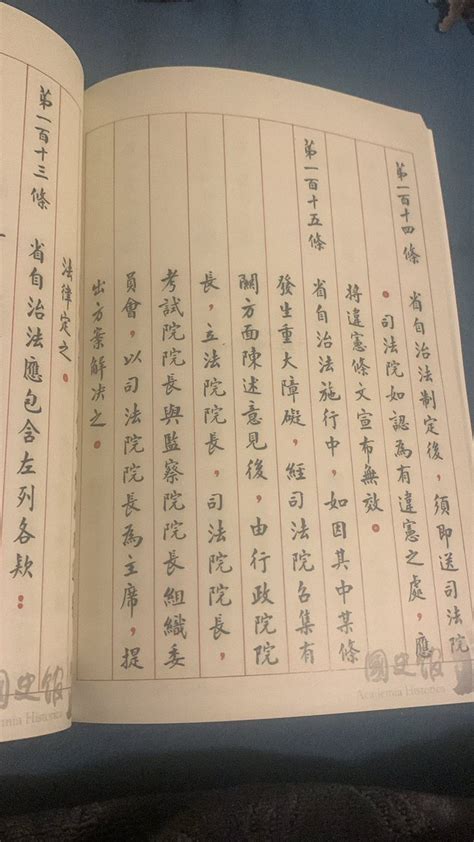 第一百十四條 省自治法制定後，須即送司法院
。司法院如認為有違憲之處，應
將違憲條文宣布無效。
第一百十五條 省自治法施行中，如因其中某條
發生重大障礙，經司法院召集有
關方面陳述意見後，由行政院院
長，立法院院長，司法院院長，
考試院院長與監察院院長組織委
員會，以司法院院長為主席，提
出方案解決之。
國史館
Academia Historica
法律定之。
第一百十三條 省自治法應包含左列各款：
國史館
emia Historica